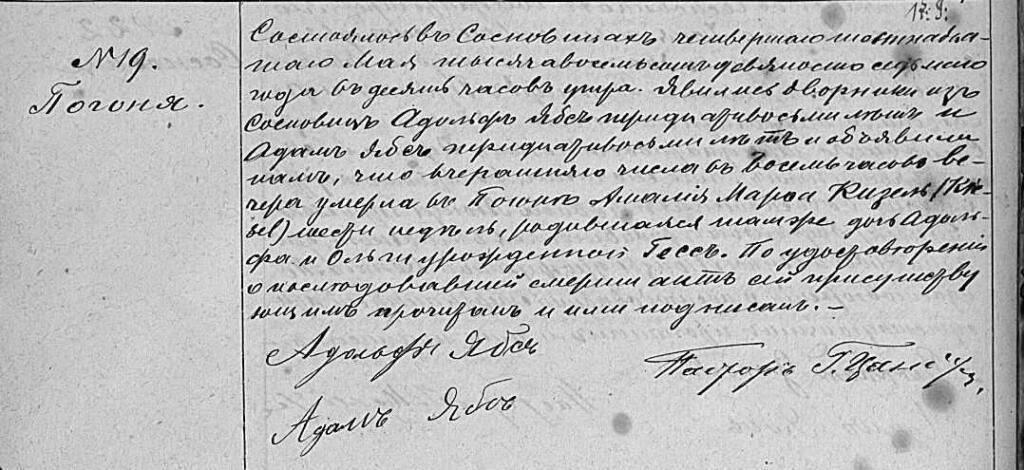 17. 9.
№ 19.
Погоня.
Состоялось въ Сосновицахъ четвертаго шестнадца-
таго Мая тысяча восемьсотъ девяносто седьмаго
года въ десять часовъ утра. Явились дворники изъ
Сосновицъ Адольфъ Ябсъ тридцативосьми лѣтъ и
Адамъ Ябсъ тридцативосьми лѣтъ и объявили
намъ, что вчерашняго числа въ восемь часовъ ве-
чера умерла въ Погонѣ Амалія Марѳа Кизель /Kie-
sel/ шести недѣль, родившаяся тамже дочь Адоль-
фа и Ольги урожденной Гессъ. По удостовѣреніи
о послѣдовавшей смерти актъ сей присутству
ющимъ прочитанъ и ими подписан. –
Адольфъ Ябсъ
Пасторъ Г.
Адамъ Ябсъ